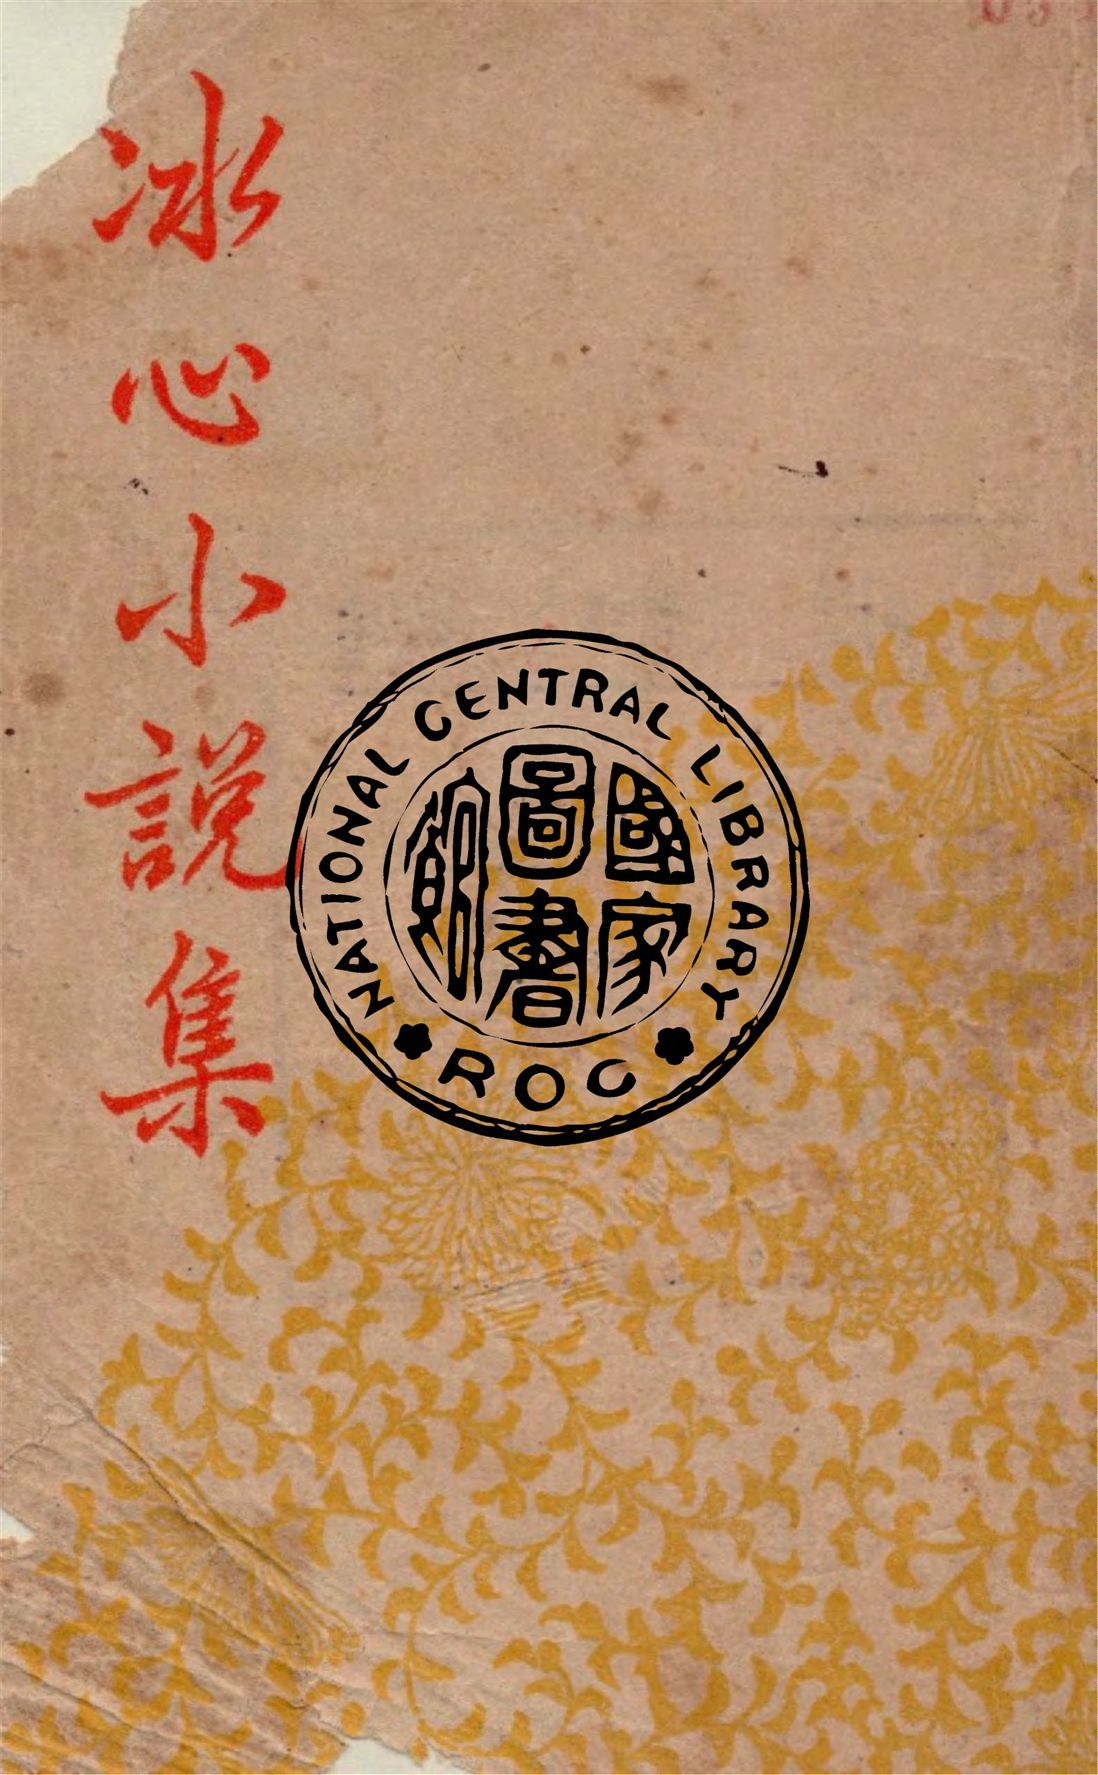 冰心小說集
NATIONAL CENTRAL LIBRARY
國家圖書館
ROC